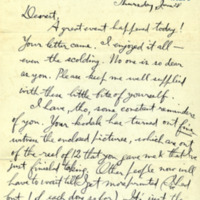 Thursday
Dearest,
A great event happened today!
Your letter came. I enjoyed it all—
even the scolding. No one is so dear
as you. Please keep me well supplied
with these little bits of yourself.
I have, too, some constant reminders
of you. Your kodak has turned out fine
the enclosed pictures, which are out
of the reel of 12 that you gave me & that I've
just finished taking. Other people now will
have to wait till I get more printed (I had
but 1 of each done so far). It isn't the